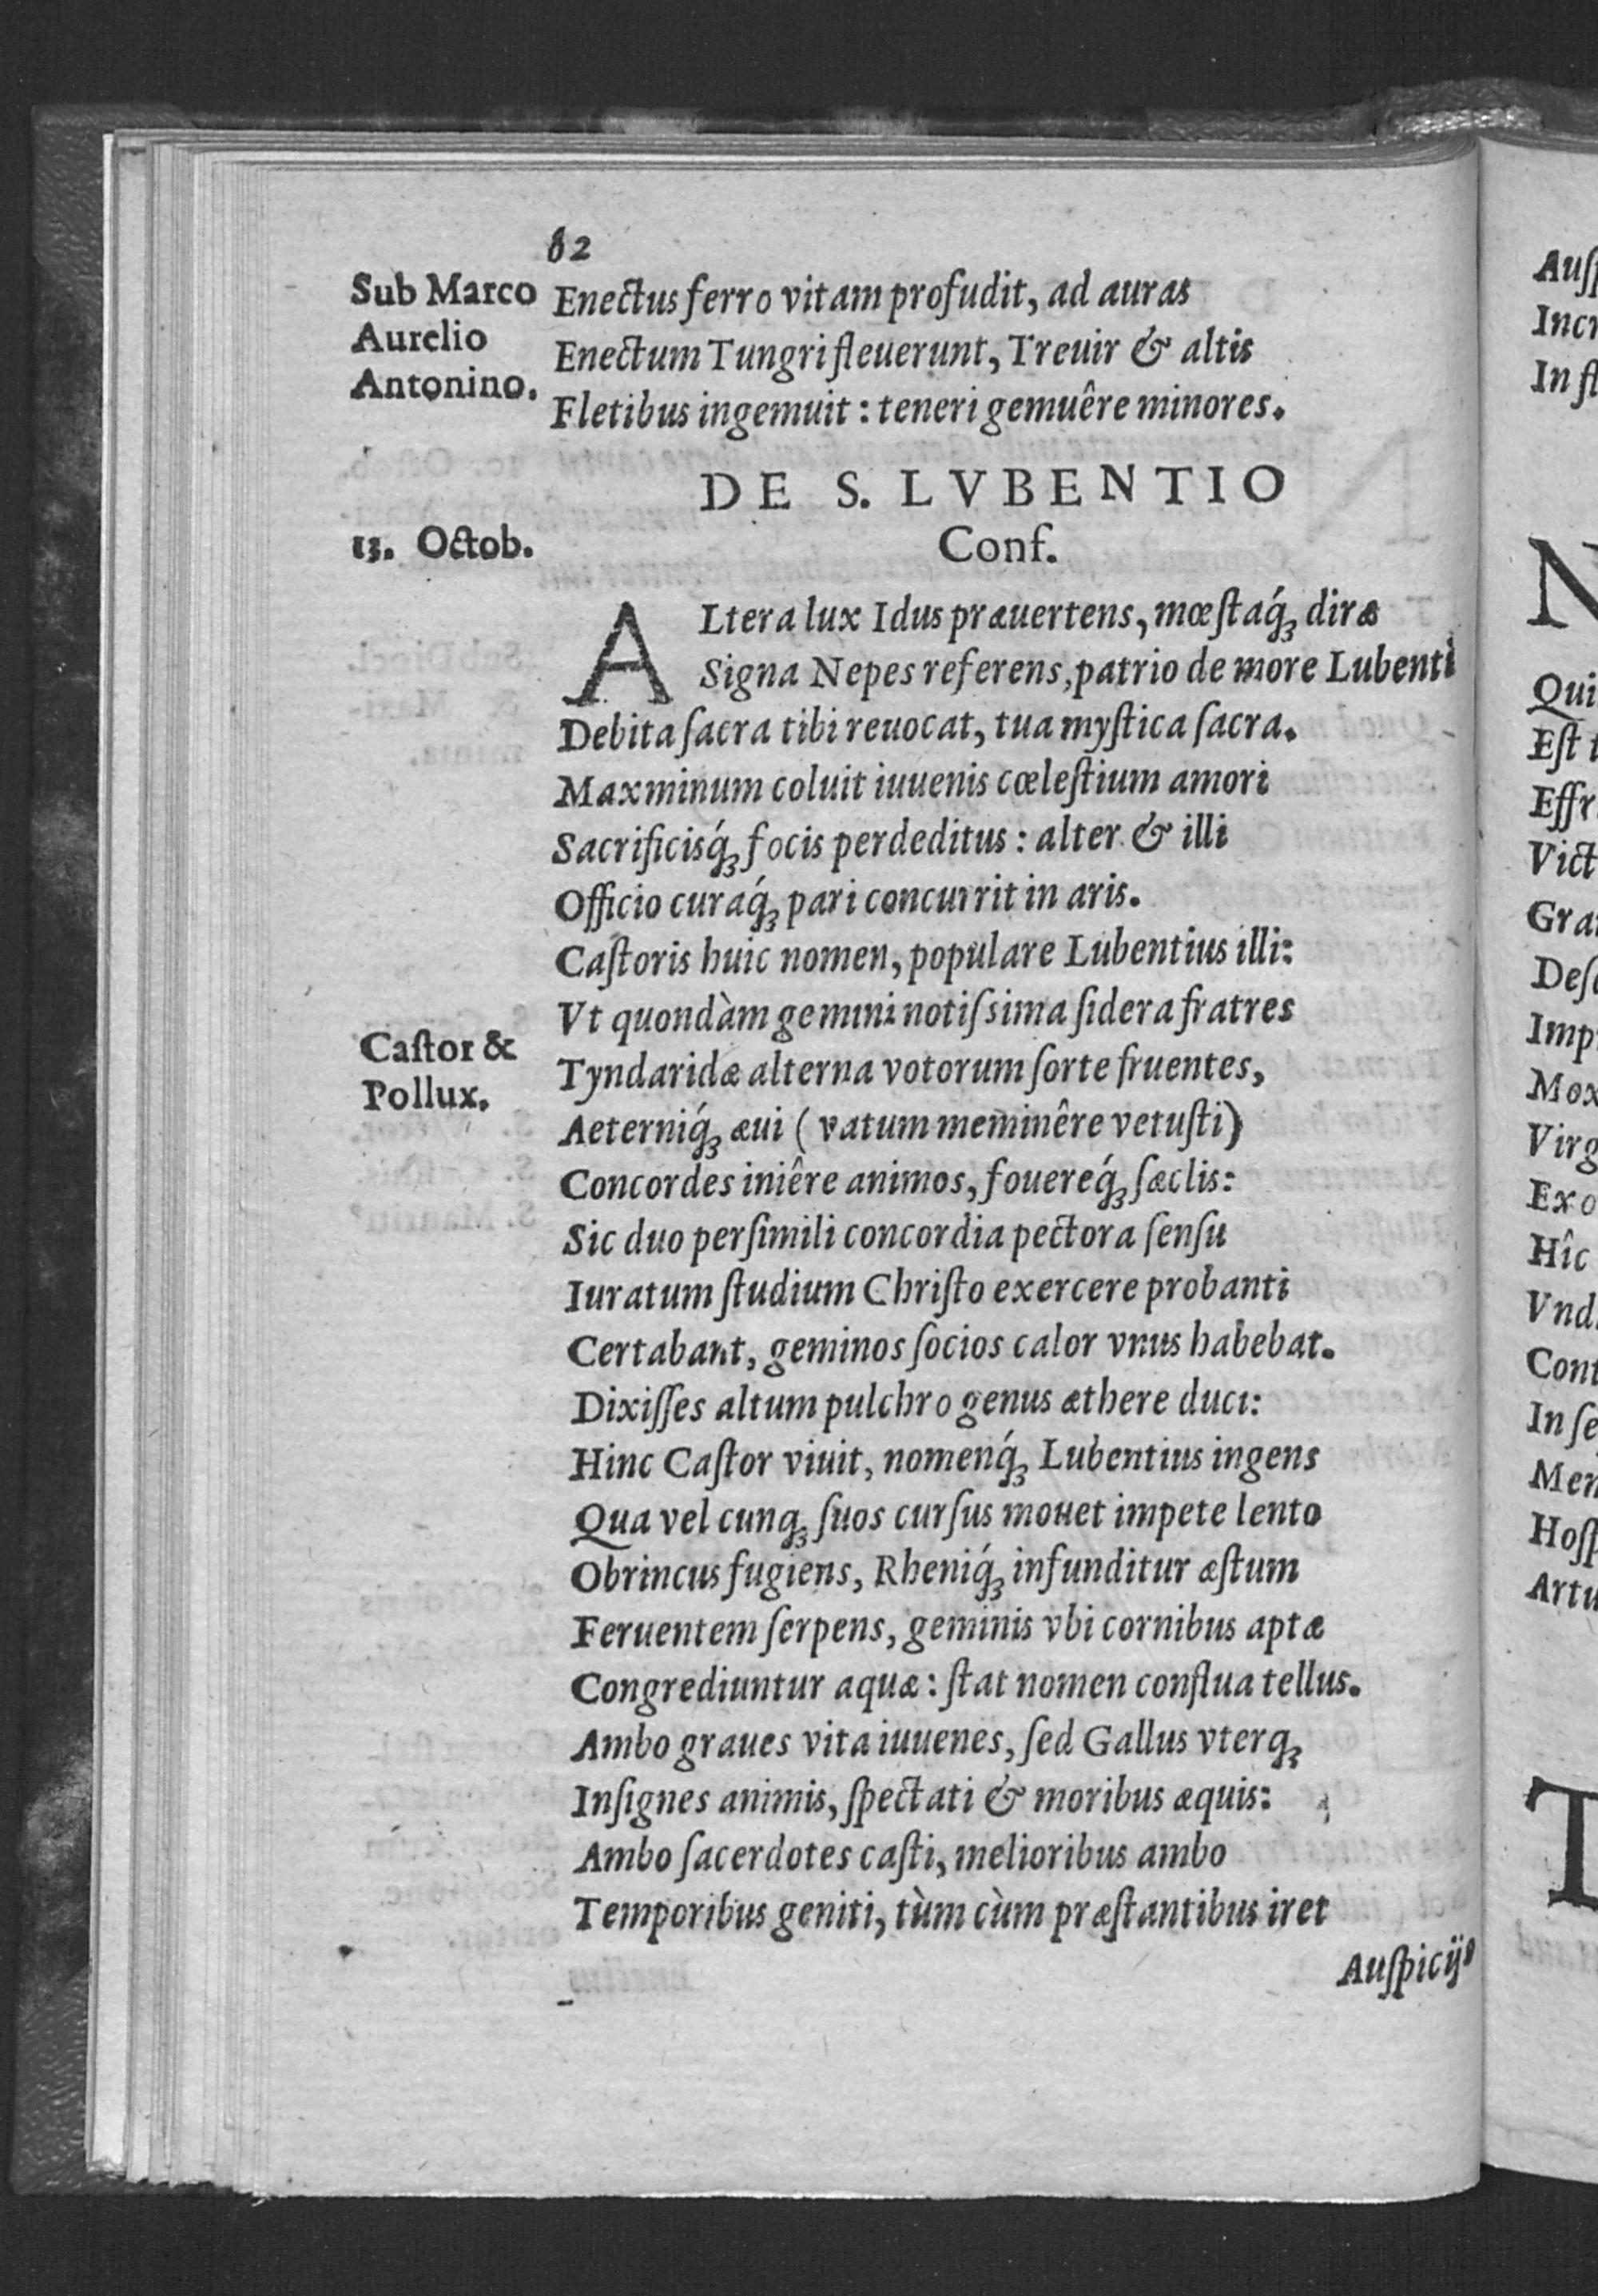 62
Sub Marco
Aurelio
Antonino.
Enectus ferro vitam profudit, ad auras
Enectum Tungri fleuerunt, Treuir & altis
Fletibus ingemuit: teneri gemuêre minores.
DE S. LVBENTIO
13. Octob.
Conf.
ALtera lux Idus præuertens, mœstaq́ꝫ diræ
Signa Nepes referens, patrio de more Lubentì
Debita ſacra tibi reuocat, tua myſtica ſacra.
Maxminum coluit iuuenis cœleſtium amori
Sacrificisq́ꝫ focis perdeditus: alter & illi
Officio curaq́ꝫ pari concurrit in aris.
Caſtoris huic nomen, populare Lubentius illi:
Vt quondàm gemini notiſsima ſidera fratres
Caſtor &
Pollux.
Tyndaridæ alterna votorum ſorte fruentes,
Aeterniq́ꝫ æui (vatum meminêre vetuſti)
Concordes iniêre animos, fouereq́ꝫ ſæclis:
Sic duo perſimili concordia pectora ſenſu
Iuratum ſtudium Chriſto exercere probanti
Certabant, geminos ſocios calor vnus habebat.
Dixiſſes altum pulchro genus æthere duci:
Hinc Caſtor viuit, nomenq́ꝫ Lubentius ingens
Qua vel cunqꝫ ſuos curſus mouet impete lento
Obrincus fugiens, Rheniq́ꝫ infunditur æſtum
Feruentem ſerpens, geminis vbi cornibus aptæ
Congrediuntur aquæ: ſtat nomen conflua tellus.
Ambo graues vita iuuenes, ſed Gallus vterqꝫ
Inſignes animis, ſpectati & moribus æquis:
Ambo ſacerdotes caſti, melioribus ambo
Temporibus geniti, tùm cùm præſtantibus iret
Auſpicijs
Auſp
Incr
In fl
N
Qui
Eſt t
Effr
Vict
Gra
Deſc
Imp
Mox
Virg
Exo
Hîc
Vnd
Cont
In ſe
Men
Hoſp
Artu
T